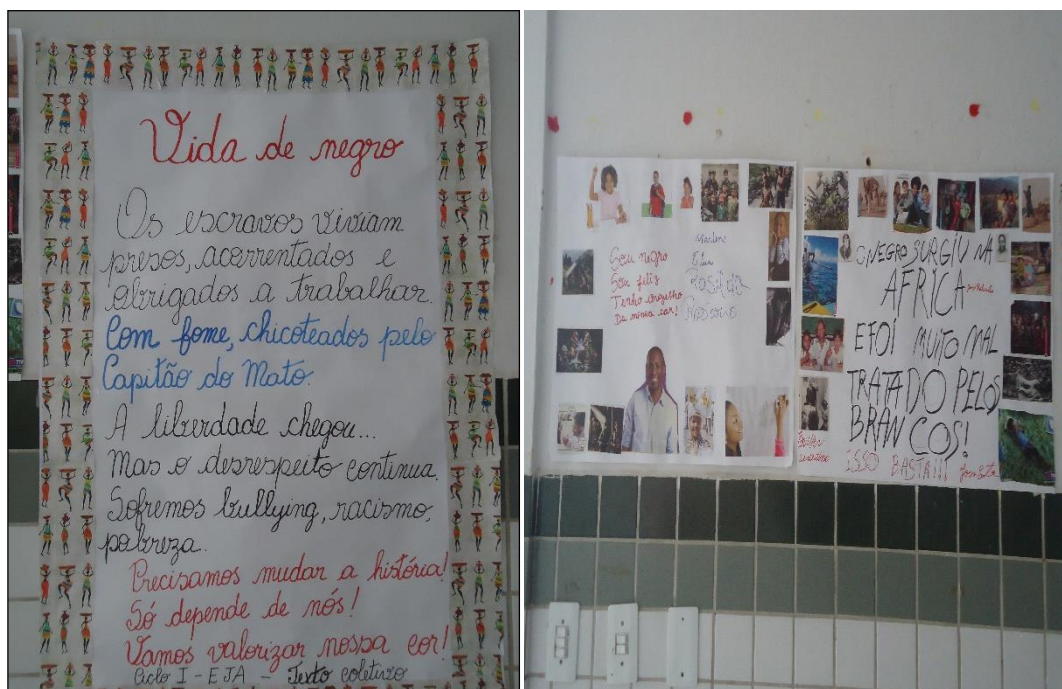 Vida de negro
Os escravos viviam
presos, acorrentados e
obrigados a trabalhar.
Com fome, chicoteados pelo
Capitão do Mato.
A liberdade chegou...
Mas o desrespeito continua.
Sofremos bullying, racismo,
pobreza.
Precisamos mudar a história!
Só depende de nós!
Vamos valorizar nossa cor!
Ciclo I - EJA - Texto coletivo
Sou negro
Sou feliz
Tenho orgulho
Da minha cor!
Marlene
O NEGRO SURGIU NA
AFRICA
E FOI MUITO MAL
TRATADO PELOS
BRANCOS!
ISSO BASTA!!!